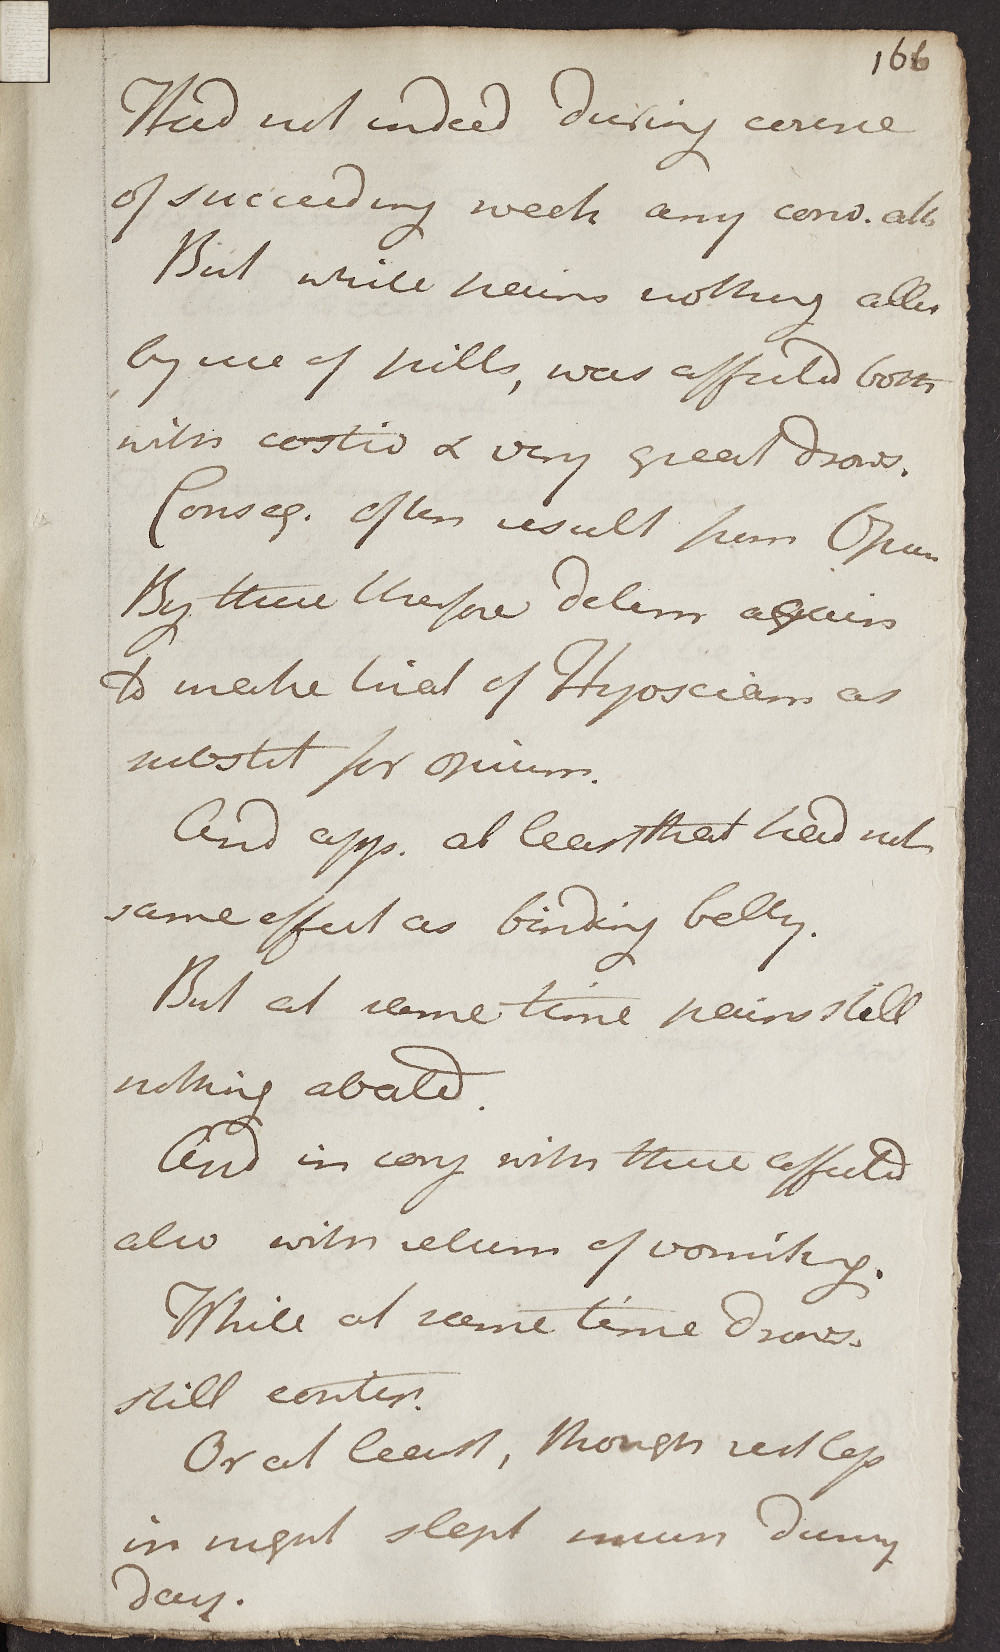 166
Had not indeed during course
of succeeding week any conv. att
But while pains nothing allev
by use of pills, was affected both
with costiv & very great drows.
Conseq. often result from Opium
By these therefore determ again
to make trial of Hyosciam as
substit for opium.
And app. at least that had not
same effect as binding belly.
But at same time pains still
nothing abated.
And in conj with these affected
also with return of vomiting.
While at same time drows.
still contin.
Or at least, though restless
in night slept much during
day.